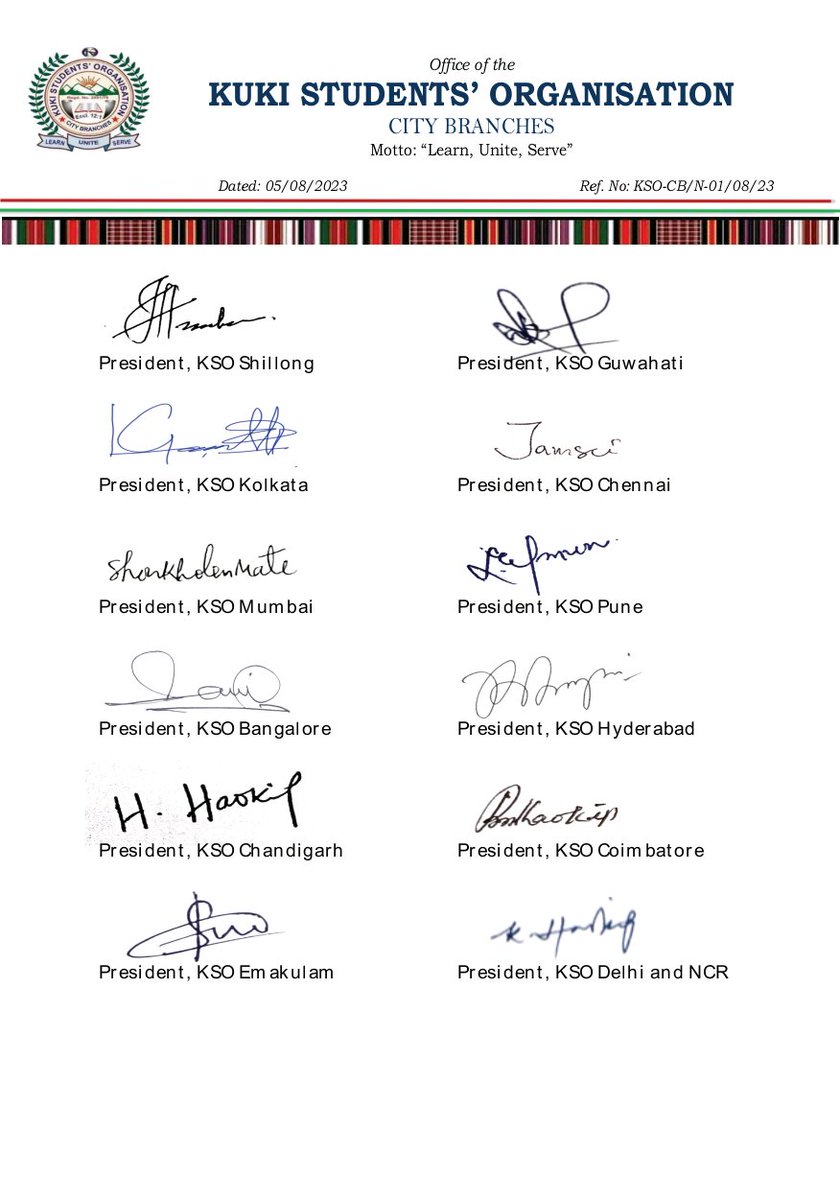 Office of the
KUKI STUDENTS' ORGANISATION
CITY BRANCHES
Motto: “Learn, Unite, Serve”
KUKI STUDENTS' ORGANISATION
Eccl. 12:1
CITY BRANCHES
LEARN UNITE SERVE
Dated: 05/08/2023 Ref. No: KSO-CB/N-01/08/23
President, KSO Shillong President, KSO Guwahati
Jamsei
President, KSO Kolkata President, KSO Chennai
President, KSO Mumbai President, KSO Pune
President, KSO Bangalore President, KSO Hyderabad
H. Haokip
President, KSO Chandigarh President, KSO Coimbatore
K. Haokip
President, KSO Emakulam President, KSO Delhi and NCR